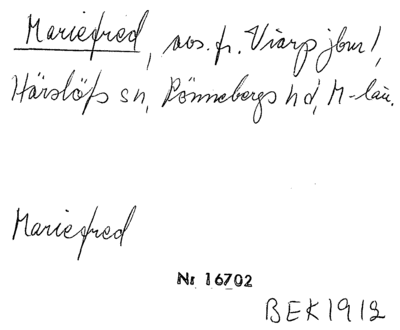 Mariefred, avs. fr. Viarp jbm 1,
Härslöfs sn, Rönnebergs hd, M-län.
Mariefred
Nr 16702
BEK1912